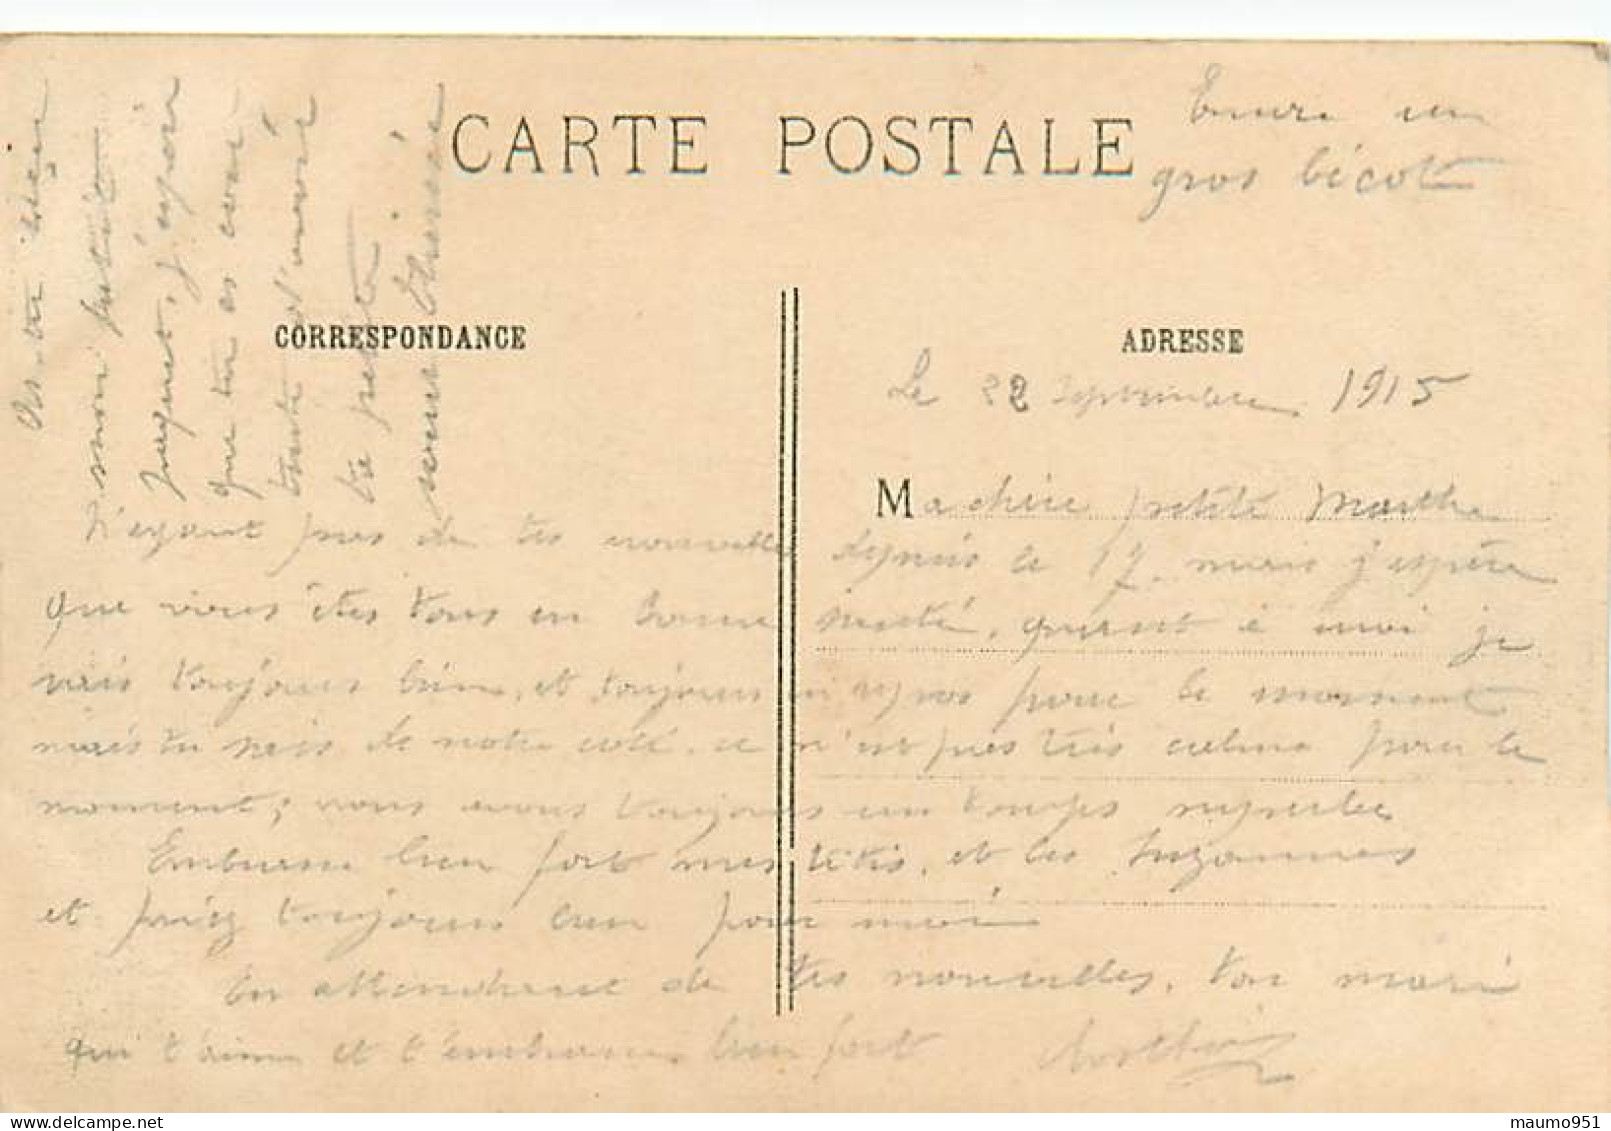 CARTE POSTALE
Encore un
gros bécot
CORRESPONDANCE
ADRESSE
Le 22 Septembre 1915
Ma chère petite Marthe
N'ayant pas de tes nouvelles depuis le 17. mais j'espère
que vous êtes tous en bonne santé, quant à moi je
vais toujours bien, et toujours repos pour le moment
mais tu sais de notre coté. ce n'est pas très calme pour le
moment, nous avons toujours un temps superbe
Embrasse bien fort mes titis, et les Suzannes
et priez toujours bien pour moi
En attendant de tes nouvelles, ton mari
qui t'aime et t'embrasse bien fort
mon petit
Jaquot, j'espère
que tu as
toute
ta petite
maumo951